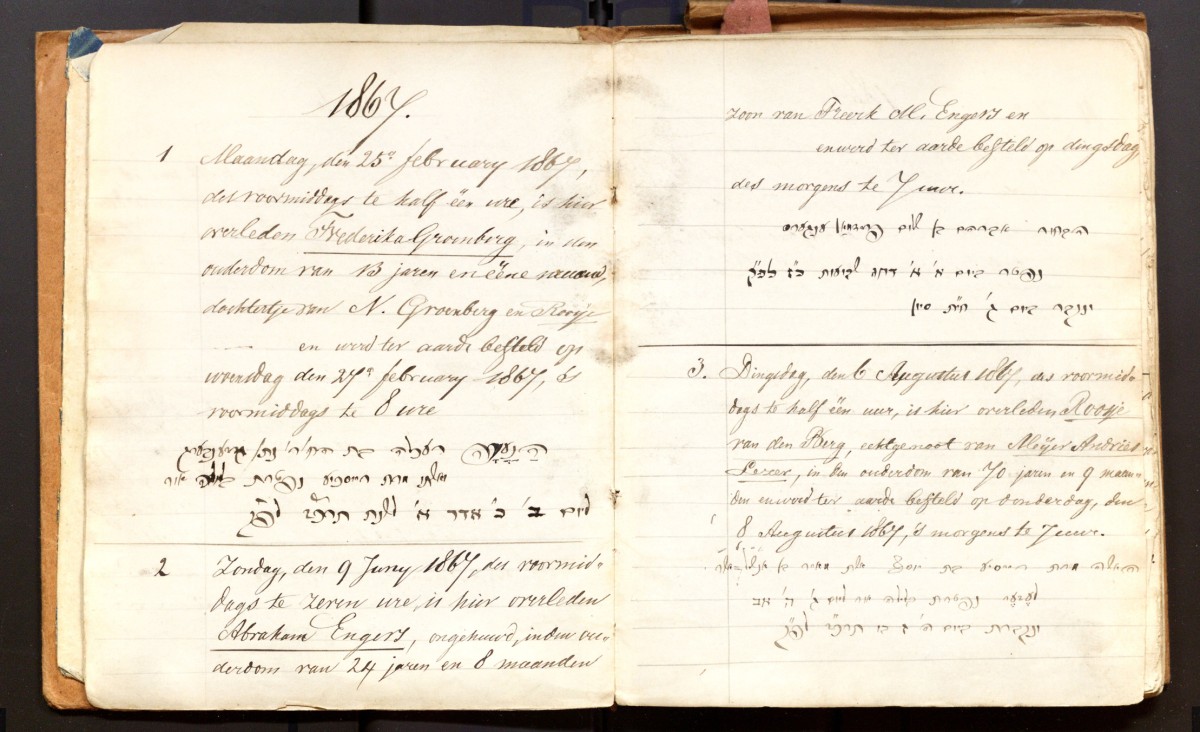 1867.
1 Maandag, den 25n february 1867,
des voormiddags te half één ure, is hier
overleden Frederika Groenberg, in den
ouderdom van 13 jaren en ééne maand,
dochtertje van N. Groenberg en Roosje
en werd ter aarde besteld op
woensdag den 27n february 1867, 's
voormiddags te 8 ure
הנערה בת
נפטרת בלילה אור
ליום ב' כ' אדר א' שנת תרכ"ז לפ"ק
2 Zondag, den 9 Juny 1867, des voormid-
dags te zeven ure, is hier overleden
Abraham Engers, ongehuwd, in den ou-
derdom van 24 jaren en 8 maanden
zoon van Freerk M. Engers en
en werd ter aarde besteld op dingsdag,
des morgens te 7 uur.
הבחור אברהם בן
נפטר ביום א' א' דחג שבועות כ"ז לפ"ק
ונקבר ביום ג' סיון
3. Dingsdag, den 6 Augustus 1867, des voormid-
dags te half één uur, is hier overleden Roosje
van den Berg, echtgenoot van Meijer Andries
Lezer, in den ouderdom van 70 jaren en 9 maan-
den en werd ter aarde besteld op donderdag, den
8 Augustus 1867, 's morgens te 7 uur.
האשה מרת בת יוסף אשת מאיר בן
נפטרת בלילה אור ליום ג' ה' אב
ונקברת ביום ה' ז' בו תרכ"ז לפ"ק